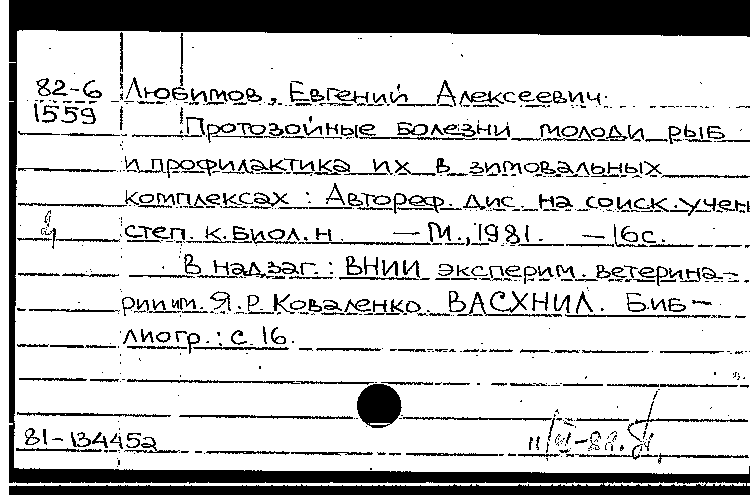 82-6 Любимов, Евгений Алексеевич.
1559
Протозойные болезни молоди рыб
и профилактика их в зимовальных
комплексах : Автореф. дис. на соиск. учен
степ. к.биол.н. — М., 1981. — 16с.
В надзаг.: ВНИИ эксперим. ветерина-
рии им. Я.Р. Коваленко. ВАСХНИЛ. Биб-
лиогр.: с. 16.
81-134452